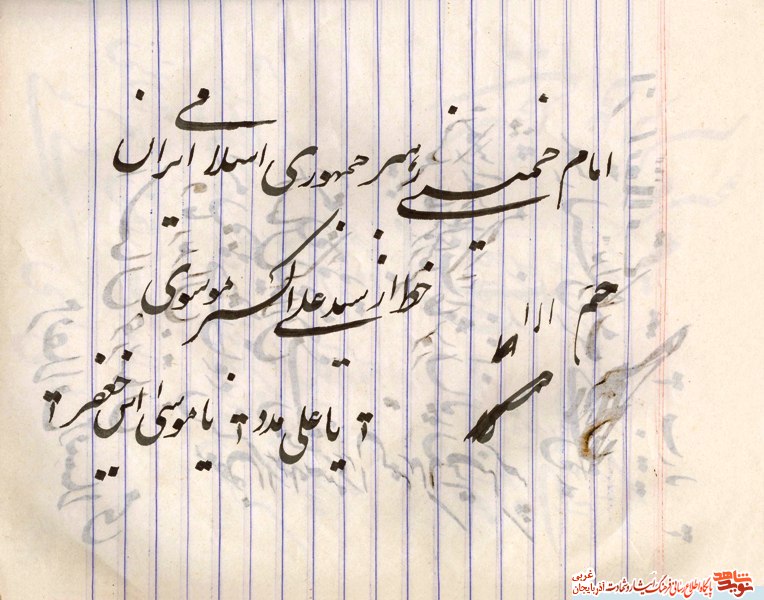 امام خمینی رهبر جمهوری اسلامی ایران
خط از سید علی اکبر موسوی
حم ا ا ا
یا علی مدد یا موسی ابن جعفر
نوید شاهد
پایگاه اطلاع رسانی فرهنگ ایثار و شهادت آذربایجان غربی